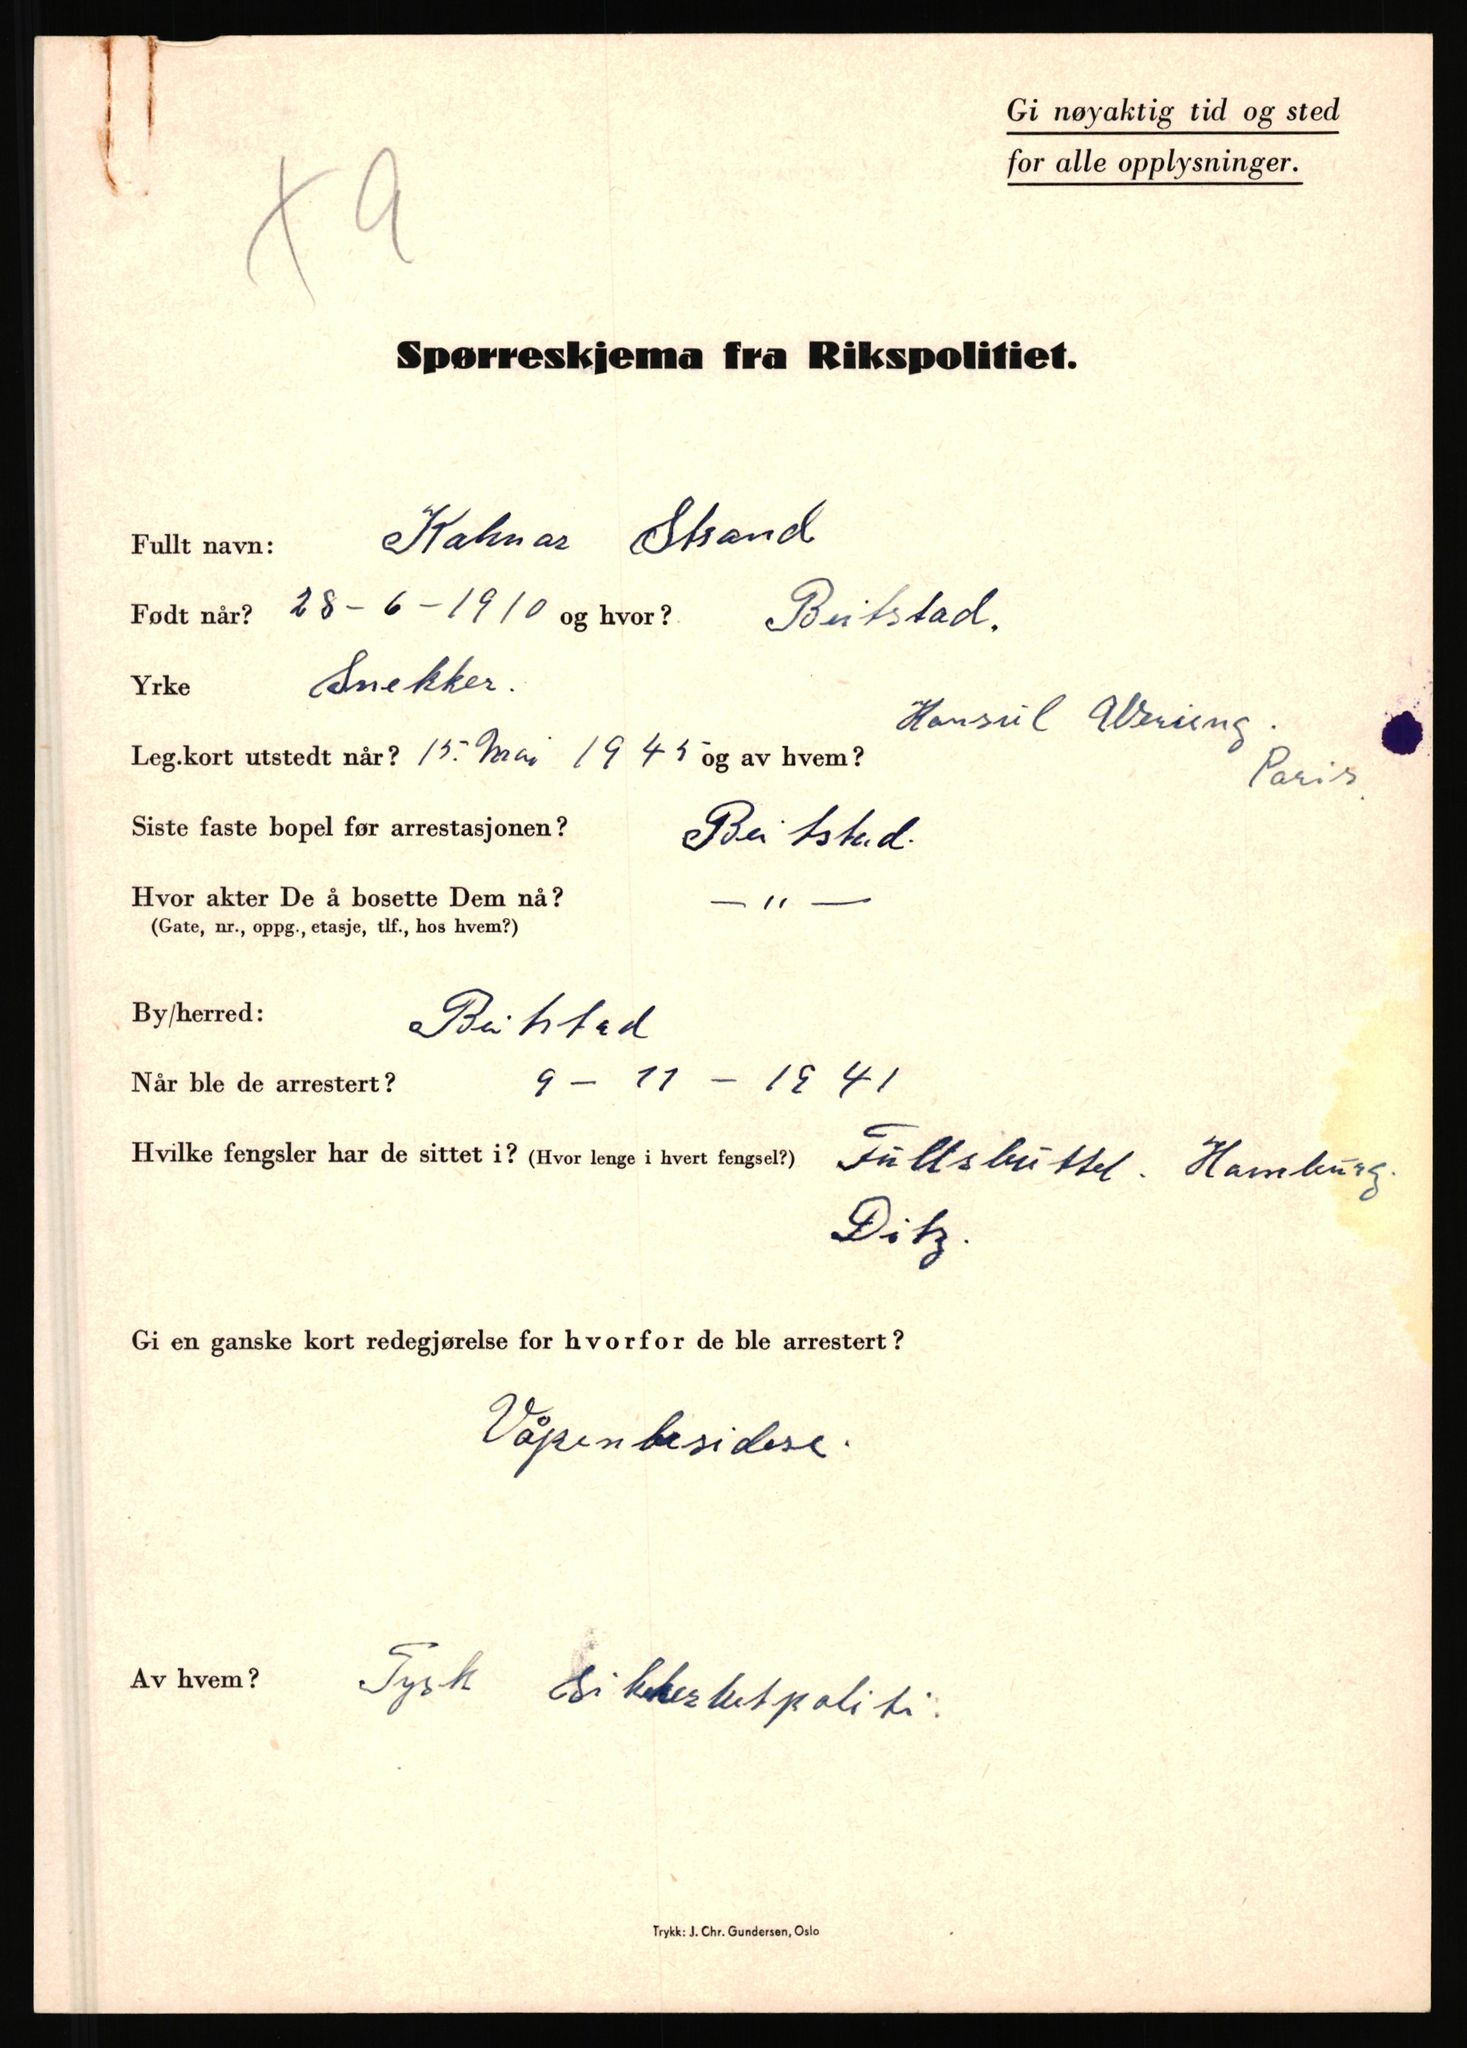 Gi nøyaktig tid og sted
for alle opplysninger.
+ 9
Spørreskjema fra Rikspolitiet.
Fullt navn: Kalmar Strand
Født når? 28-6-1910 og hvor? Beitstad.
Yrke Snekker.
Leg.kort utstedt når? 15. Mai 1945 og av hvem? Konsul
Paris.
Siste faste bopel før arrestasjonen? Beitstad.
Hvor akter De å bosette Dem nå? — " —
(Gate, nr., oppg., etasje, tlf., hos hvem?)
By/herred: Beitstad
Når ble de arrestert? 9 - 11 - 1941
Hvilke fengsler har de sittet i? (Hvor lenge i hvert fengsel?) Fullsbuttel. Hamburg.
Ditz.
Gi en ganske kort redegjørelse for hvorfor de ble arrestert?
Våpenbesidese.
Av hvem? Tysk sikkerhetpoliti.
Trykk: J. Chr. Gundersen, Oslo